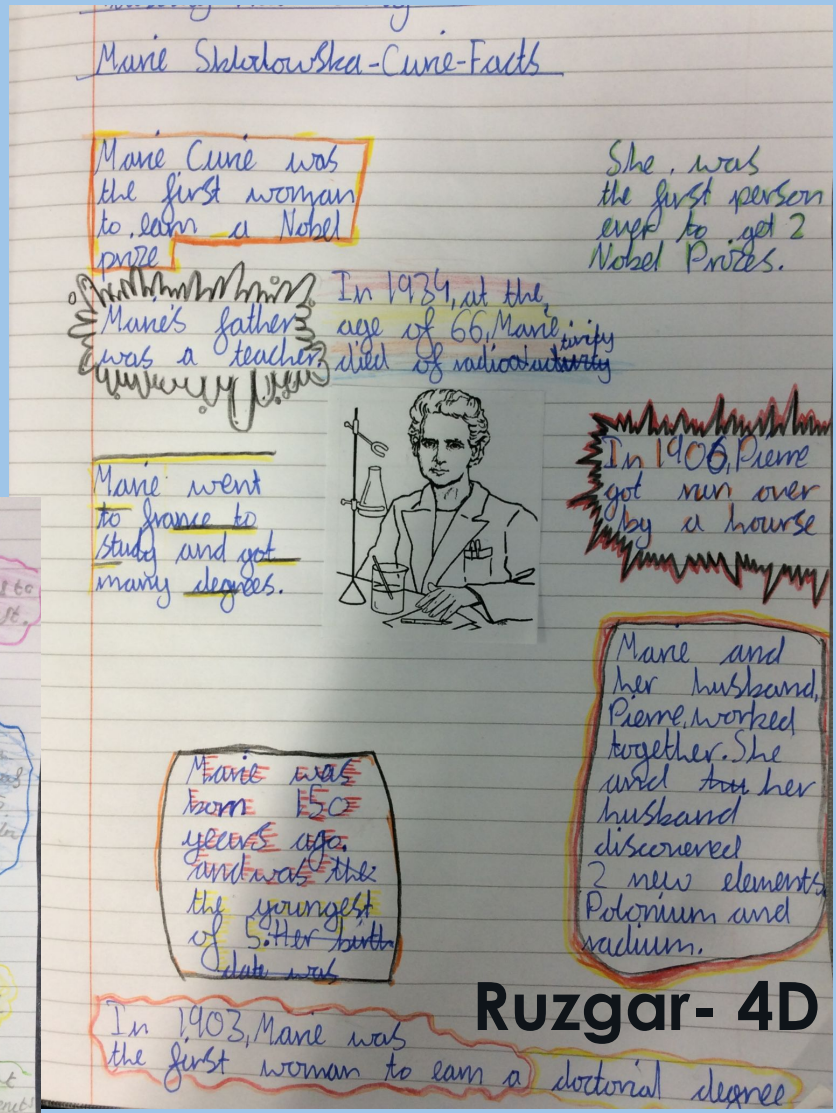 Marie Sklodowska-Curie-Facts
Marie Curie was
the first woman
to earn a Nobel
prize
She was
the first person
ever to get 2
Nobel Prizes.
Marie's father
was a teacher.
In 1934, at the
age of 66, Marie
died of radioactivity
Marie went
to france to
study and got
many degrees.
In 1906, Pierre
got run over
by a hourse
Marie and
her husband,
Pierre, worked
together. She
and her
husband
discovered
2 new elements
Polonium and
radium.
Marie was
born 150
years ago.
and was the
the youngest
of 5. Her birth
date was
In 1903, Marie was
the first woman to earn a doctorial degree
Ruzgar- 4D